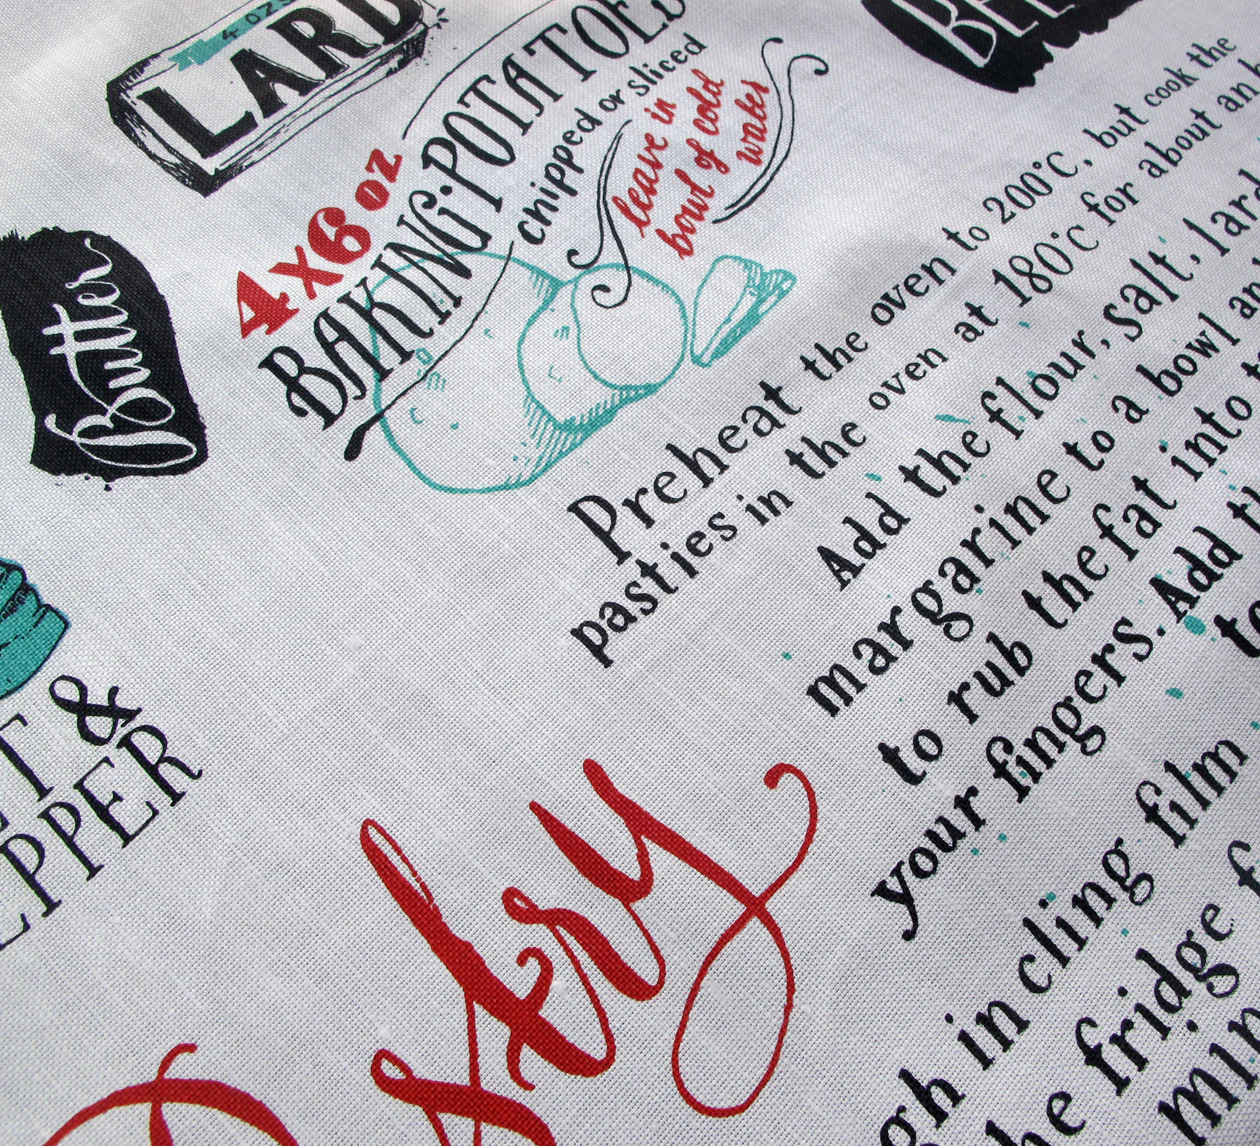 4 OZS
LARD
4x6 oz
BAKING POTATOES
chipped or sliced
leave in
bowl of cold
water
Butter
&
Preheat the oven to 200°C, but cook the
pasties in the oven at 180°C for about an
Add the flour, salt, lard
margarine to a bowl
to rub the fat into
your fingers. Add
to
in cling film
fridge